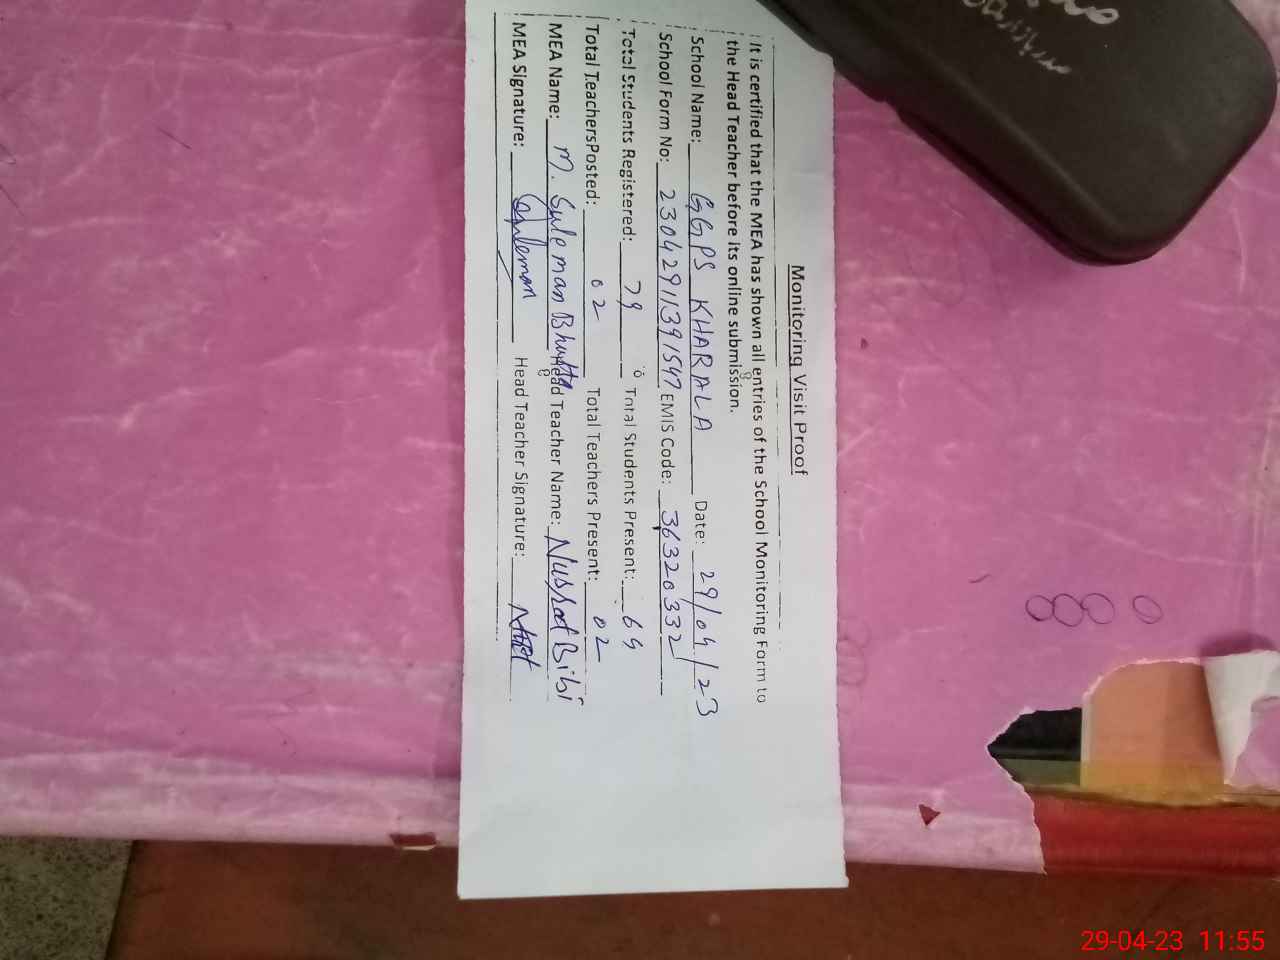 Monitoring Visit Proof
It is certified that the MEA has shown all entries of the School Monitoring Form to
the Head Teacher before its online submission.
School Name: GGPS KHARALA Date: 29/04/23
School Form No: 23042911391547 EMIS Code: 36320332
Total Students Registered: 79 Total Students Present: 69
Total TeachersPosted: 02 Total Teachers Present: 02
MEA Name: M. Suleman Bhutta Head Teacher Name: Nusrat Bibi
MEA Signature: Suleman Head Teacher Signature:
29-04-23 11:55